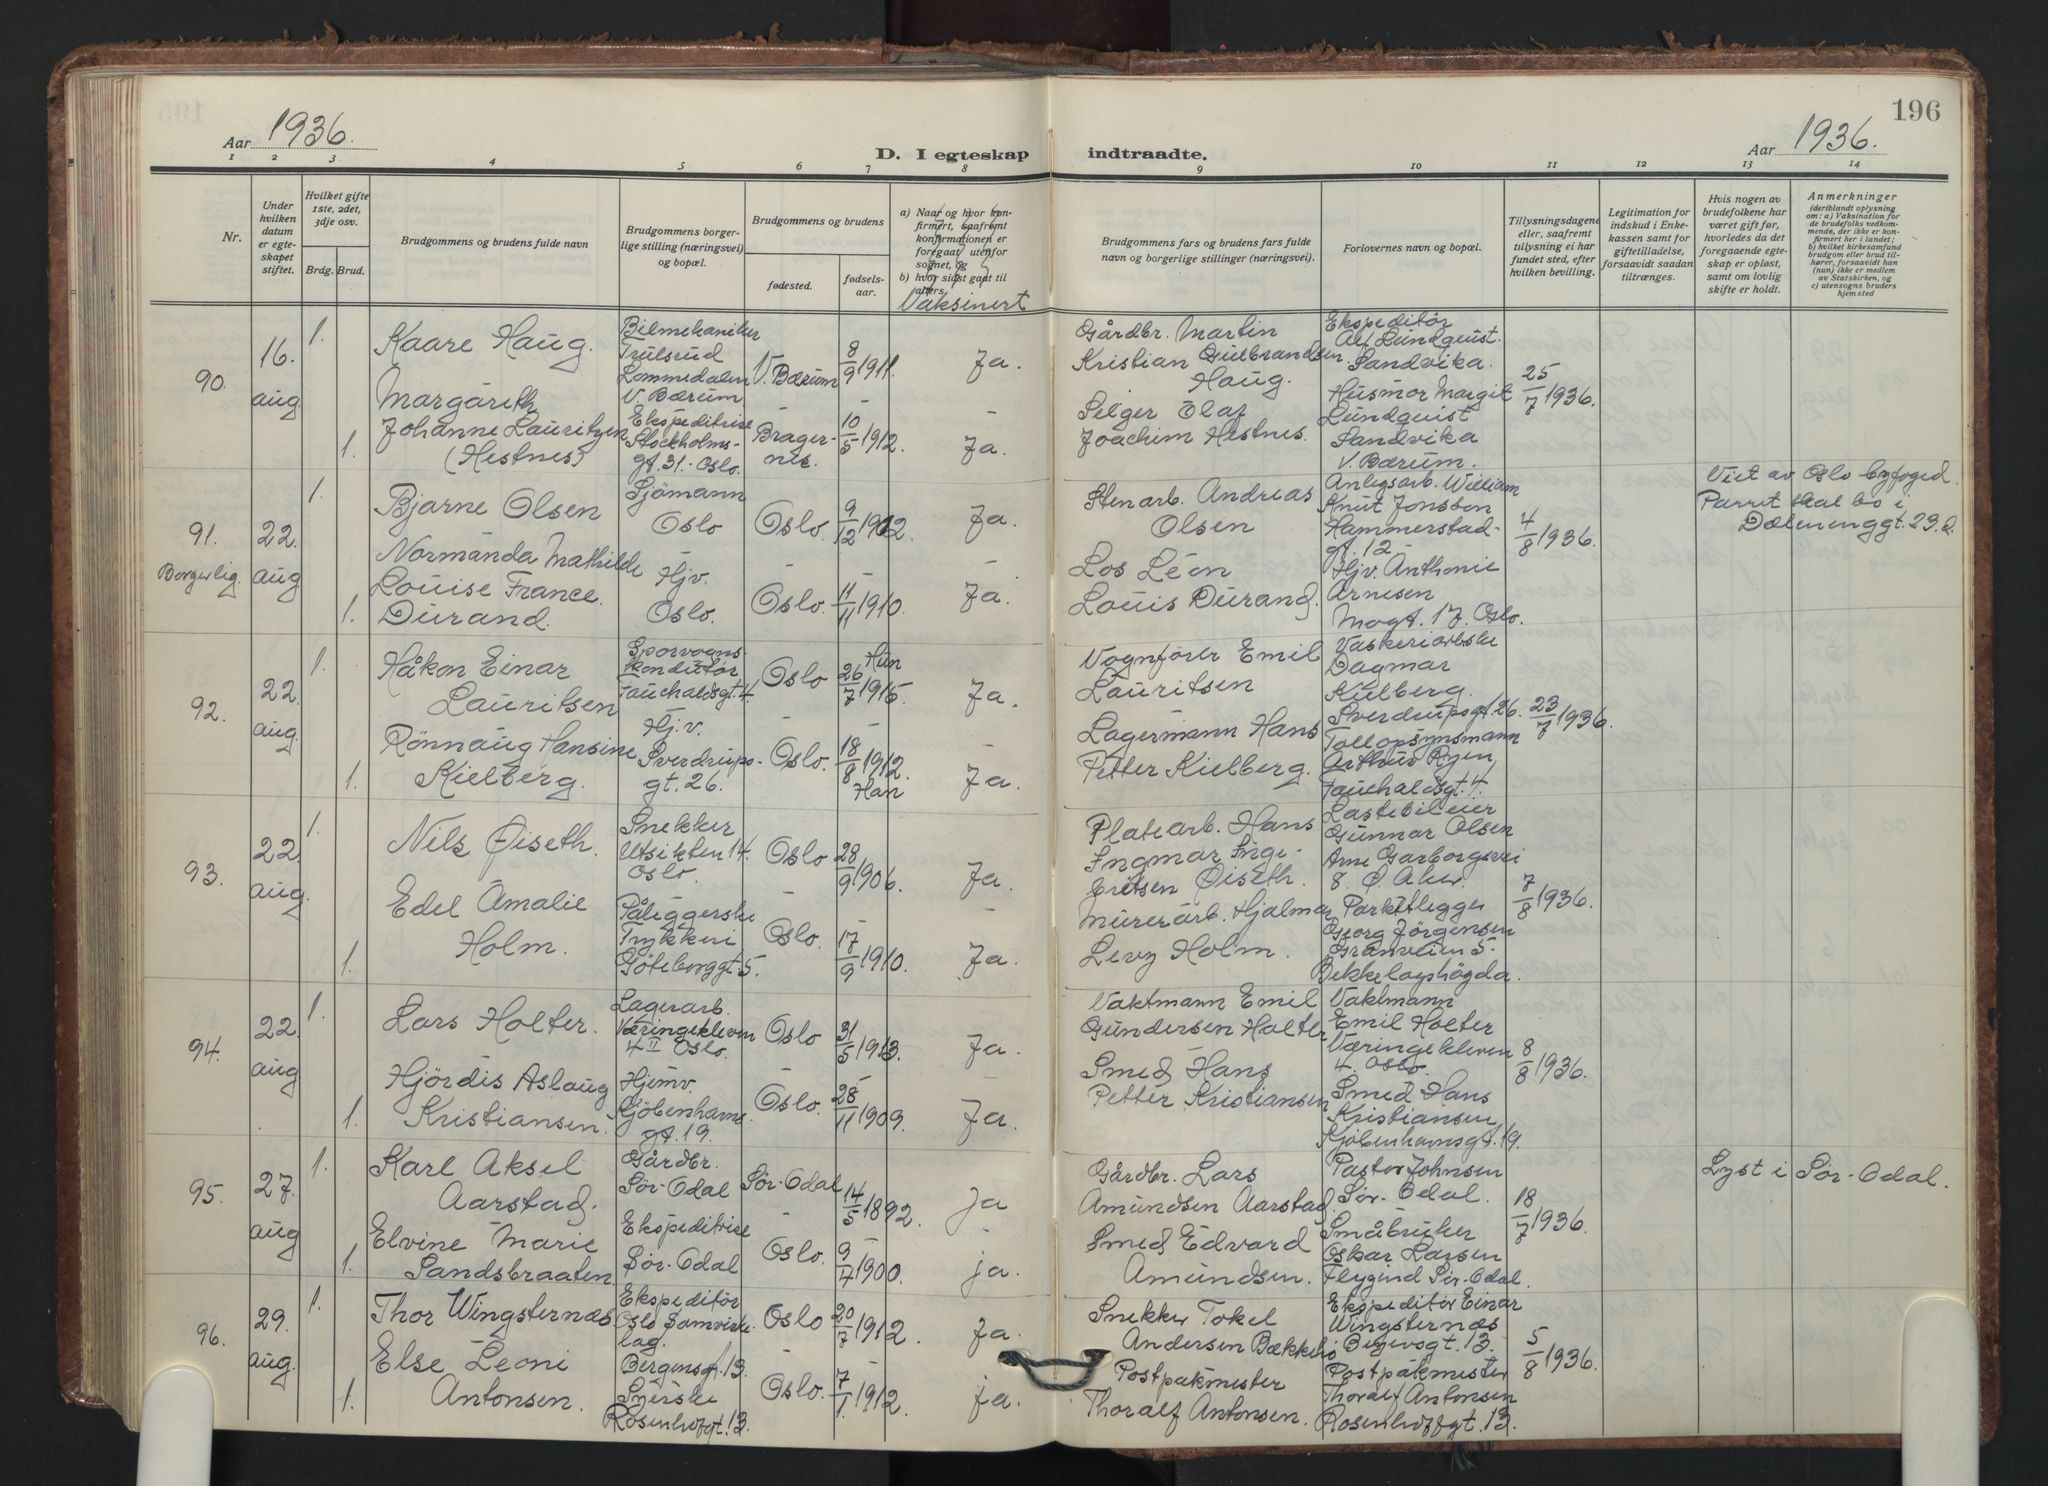 196
Aar 1936.
D. I egteskap indtraadte.
Aar 1936.
1 2 3 4 5 6 7 8 9 10 11 12 13 14
Nr.
Under hvilken datum er egteskapet stiftet.
Hvilket gifte 1ste, 2det, 3dje osv.
Brdg. Brud.
Brudgommens og brudens fulde navn
Brudgommens borgerlige stilling (næringsvei) og bopæl.
Brudgommens og brudens
fødested.
fødselsaar.
a) Naar og hvor konfirmert, saafremt konfirmationen er foregaat utenfor sognet, og
b) hvor sidst gaat til alters.
Vaksinert
Brudgommens fars og brudens fars fulde navn og borgerlige stillinger (næringsvei).
Forlovernes navn og bopæl.
Tillysningsdagene eller, saafremt tillysning ei har fundet sted, efter hvilken bevilling.
Legitimation for indskud i Enkekassen samt for giftetilladelse, forsaavidt saadan tiltrænges.
Hvis nogen av brudefolkene har været gift før, hvorledes da det foregaaende egteskap er opløst, samt om lovlig skifte er holdt.
Anmerkninger
(deriblandt oplysning om: a) Vaksination for de brudefolks vedkommende, der ikke er konfirmert her i landet; b) hvilket kirkesamfund brudgom eller brud tilhører, forsaavidt han (hun) ikke er medlem av Statskirken, og c) utensogns bruders hjemsted
90.
16. aug.
1.
Kaare Haug.
Bilmekaniker
Trulsrud
Lommedalen
V. Bærum
V. Bærum
8/9 1911.
Ja.
Gårdbr. Martin
Kristian Gulbrandsen
Haug.
Ekspeditör
Alf Lundquist.
Sandvika.
25/7 1936.
1.
Margareth
Johanne Lauritzen
(Hestnes)
Ekspeditrise
Stockholms-
gt. 31. Oslo.
Bragernes.
10/5 1912.
Ja.
Selger Olaf
Joachim Hestnes.
Husmor Margit
Lundquist
Sandvika
V. Bærum.
91.
Borgerlig.
22. aug
1.
Bjarne Olsen
Sjömann
Oslo
Oslo.
9/12 1912.
Ja.
Stenarb. Andreas
Olsen
Anlegsarb. William
Knut Jonssen
Hammerstad-
gt. 12
4/8 1936.
Viet av Oslo byfoged.
Parret skal bo i
Dælenenggt. 29.
1.
Normanda Mathilde
Louise France
Durand.
Hjv.
Oslo.
Oslo.
11/11 1910.
Ja.
Los Léon
Louis Durand.
Hjv. Anthonie
Arnesen
Mogt. 17. Oslo.
92.
22. aug.
1.
Håkon Einar
Lauritsen
Sporvogns-
konduktör
Fauchaldsgt. 4.
Oslo
Hun
26/7 1915
Ja.
Vognförer Emil
Lauritsen
Vaskeriarbske
Dagmar
Kielberg.
Sverdrupsgt. 26.
23/7 1936.
1.
Rönnaug Hansine
Kielberg.
Hj.v.
Sverdrups-
gt. 26.
Oslo.
18/8 1912.
Han
Ja.
Lagermann Hans
Petter Kielberg.
Tollopsynsmann
Arthur Ryen
Fauchaldsgt. 4.
93.
22. aug.
1.
Nils Øiseth.
Snekker
Utsikten 14.
Oslo.
Oslo
28/9 1906.
Ja.
Platearb. Hans
Ingmar Inge-
britsen Øiseth.
Lastebileier
Gunnar Olsen
Arne Garborgsvei
8. Ø. Aker.
7/8 1936.
1.
Edel Amalie
Holm.
Påleggerske
Trykkeri
Göteborggt. 5.
Oslo.
17/9 1910.
Ja.
Murerarb. Hjalmar
Levy Holm.
Parkttlegger
Georg Jörgensen
Granveien 5.
Bekkelagshögda.
94.
22. aug
1.
Lars Holter.
Lagerarb.
Væringekleven
4 II Oslo.
Oslo
31/5 1913.
Ja.
Vaktmann Emil
Gundersen Holter
Vaktmann
Emil Holter
Væringekleven
4. Oslo.
8/8 1936.
1.
Hjördis Aslaug
Kristiansen.
Hjemv.
Kjöbenhavns
gt. 19.
Oslo.
28/11 1909.
Ja.
Smed Hans
Petter Kristiansen
Smed Hans
Kristiansen
Kjöbenhavnsgt. 19.
95.
27. aug
1.
Karl Aksel
Aarstad.
Gårdbr.
Sör-Odal
Sör-Odal
14/5 1892.
ja
Gårdbr. Lars
Amundsen Aarstad.
Pastor Johnsen
Sör-Odal.
18/7 1936.
Lyst i Sör-Odal.
1.
Elvine Marie
Sandsbraaten
Ekspeditrise
Sör-Odal
Oslo.
9/4 1900.
ja.
Smed Edvard
Amundsen.
Småbruker
Oskar Larsen
Flygind Sör-Odal.
96.
29. aug.
1.
Thor Wingsternæs
Ekspeditör
Oslo Samvirke-
lag.
Bergensgt. 13.
Oslo
20/7 1912.
Ja.
Snekker Tokel
Andersen Bækkebo
Ekspeditör Einar
Wingsternæs
Bergensgt. 13.
5/8 1936.
1.
Else Leoni
Antonsen.
Syerske
Rosenhoffgt. 13.
Oslo.
7/1 1912.
ja.
Postpakmester
Thoralf Antonsen.
Postpakmester
Thoralf Antonsen
Rosenhoffgt. 13.